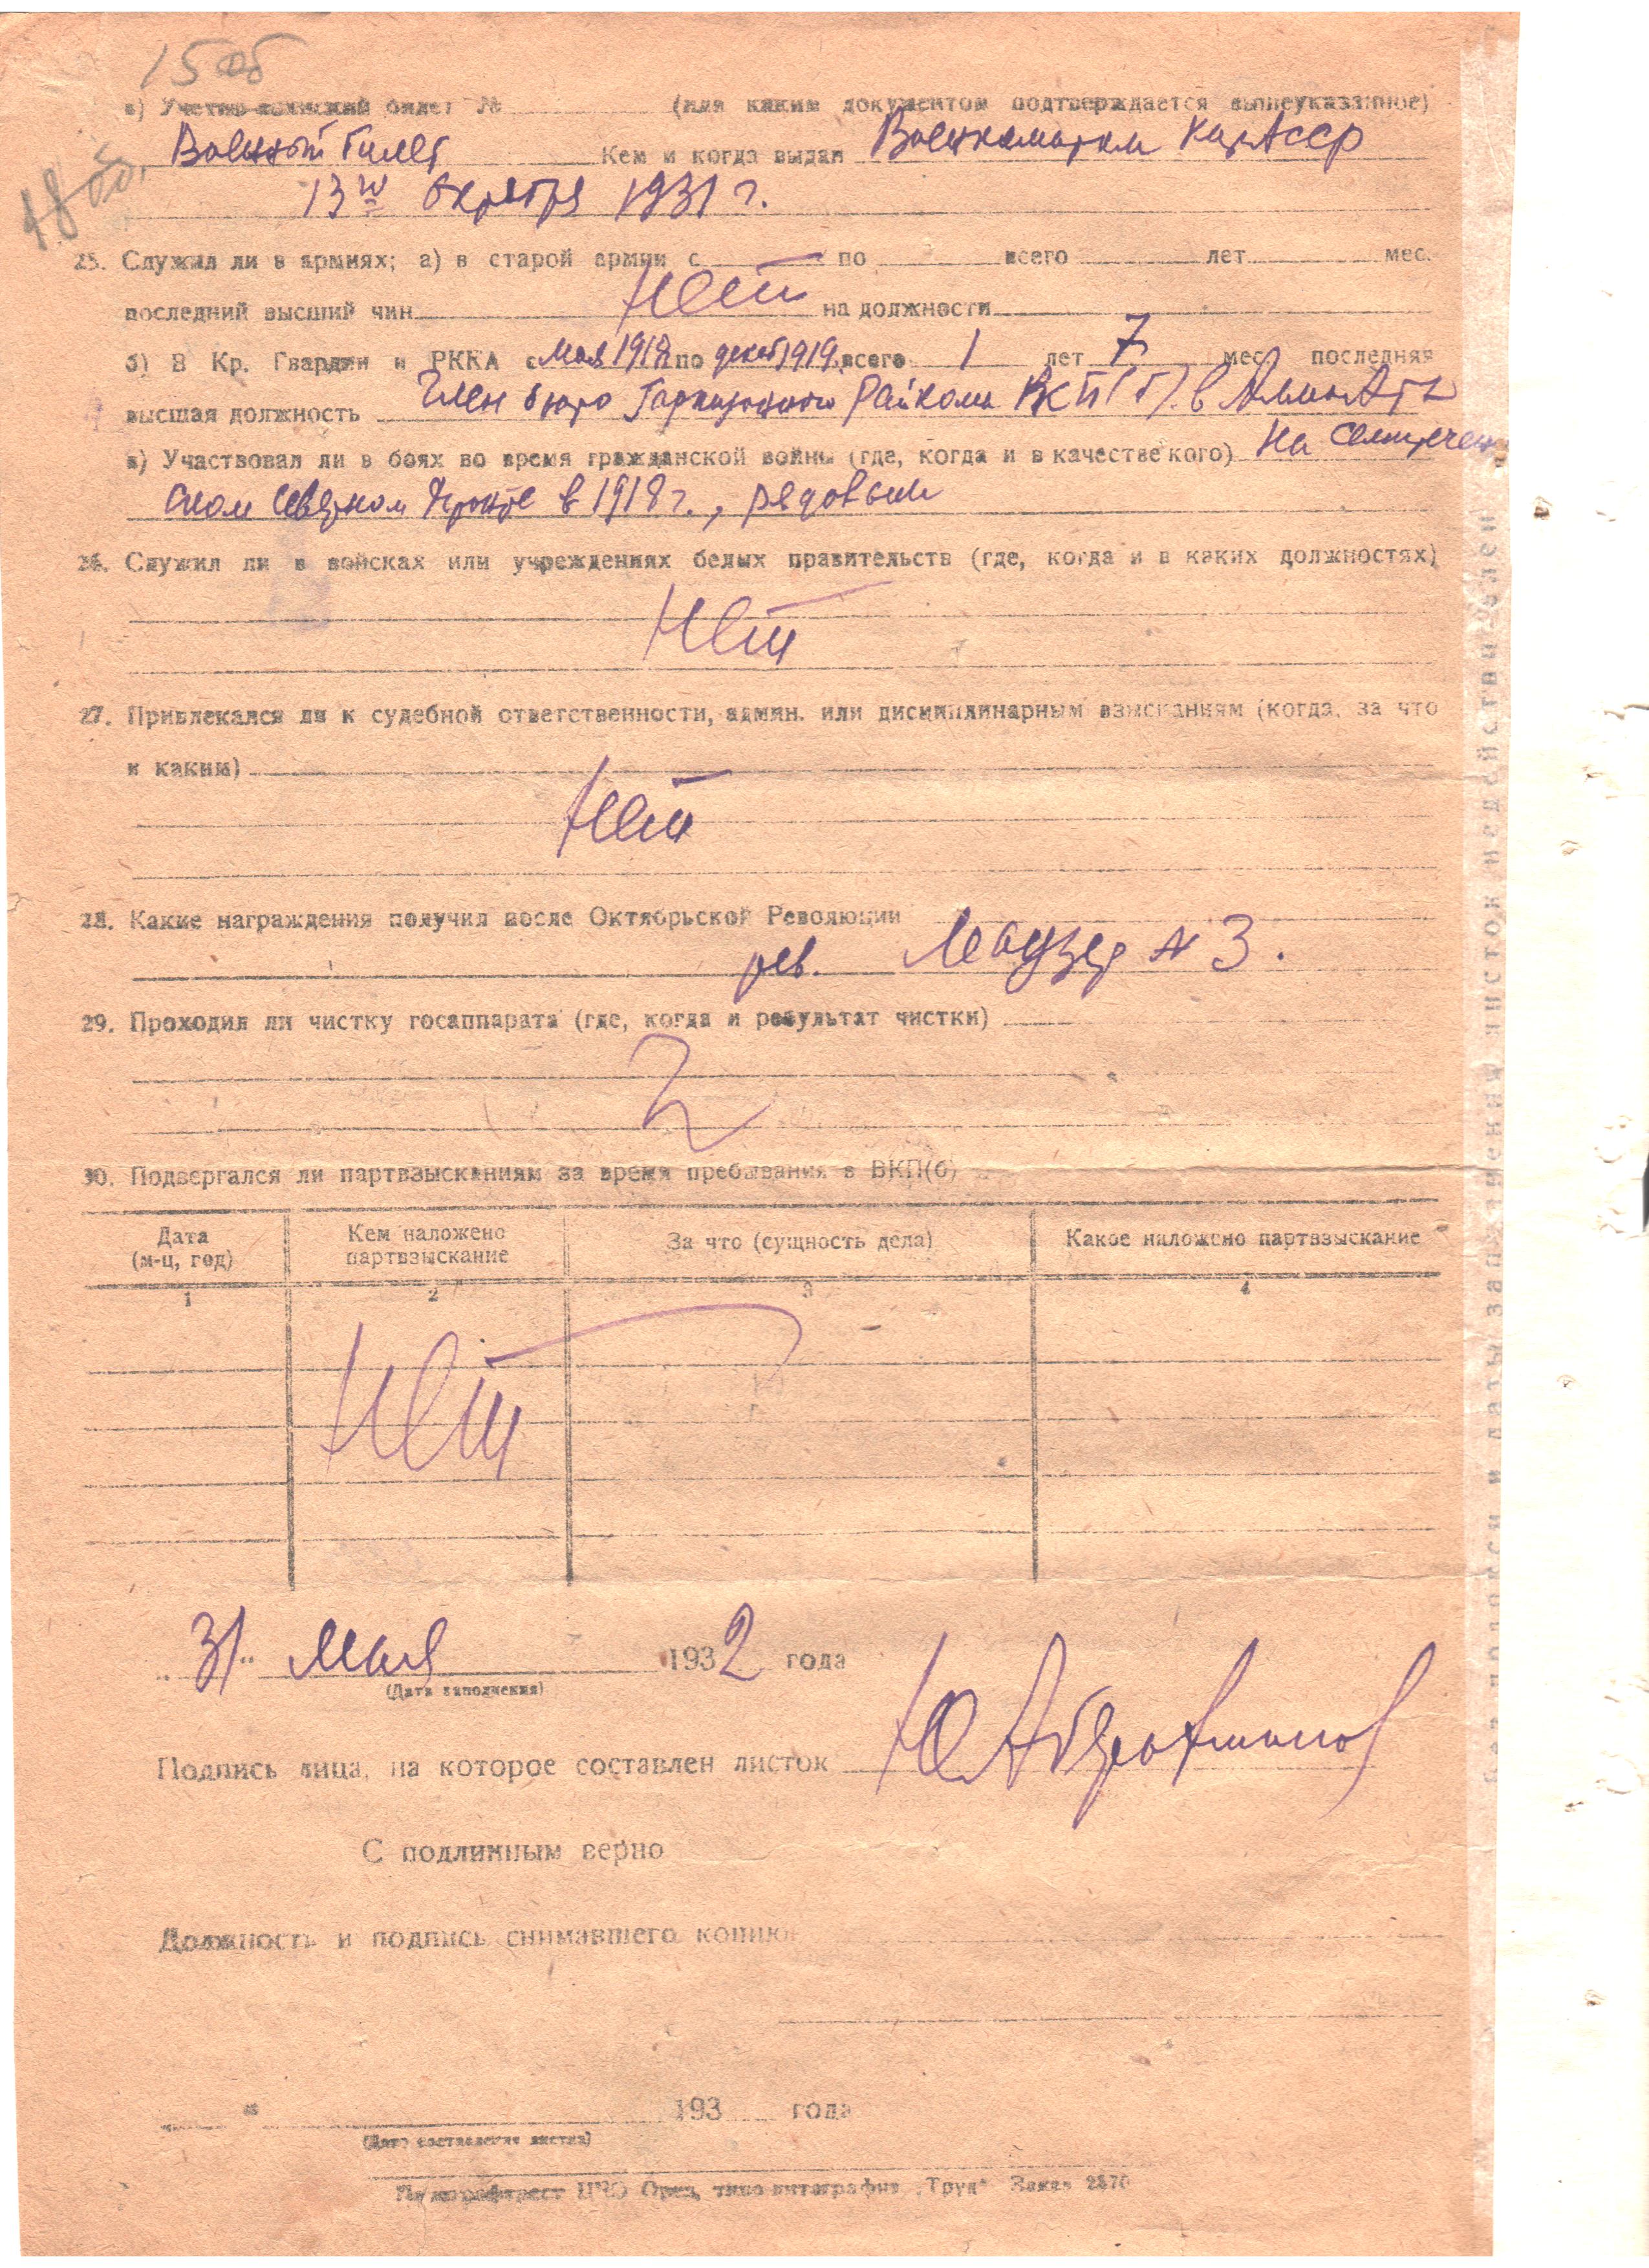 15 об
48 об.
в) Учетно-воинский билет № (или каким документом подтверждается вышеуказанное)
Военный билет Кем и когда выдан Военкоматом КирАССР
13го октября 1931 г.
25. Служил ли в армиях; а) в старой армии с по всего лет мес.
последний высший чин Нет на должности
б) В Кр. Гвардии и РККА с мая 1918 по декаб 1919 всего 1 лет 7 мес. последняя
высшая должность Член бюро Гарнизонного Райкома ВКП(б) в Алма-Ата
в) Участвовал ли в боях во время гражданской войны (где, когда и в качестве кого) На Семиречен
ском Северном Фронте в 1918 г., рядовым
26. Служил ли в войсках или учреждениях белых правительств (где, когда и в каких должностях)
Нет
27. Привлекался ли к судебной ответственности, админ. или дисциплинарным взысканиям (когда, за что
и каким)
Нет
28. Какие награждения получил после Октябрьской Революции
рев. Маузер № 3.
29. Проходил ли чистку госаппарата (где, когда и результат чистки)
30. Подвергался ли партвзысканиям за время пребывания в ВКП(б)
Дата (м-ц, год) Кем наложено партвзыскание За что (сущность дела) Какое наложено партвзыскание
1 2 3 4
Нет
"31" мая 1932 года
(Дата заполнения)
Подпись лица, на которое составлен листок Ю Абдрахманов
С подлинным верно
Должность и подпись снимавшего копию
" 193 года
(Дата составления листка)
Полиграфтрест ЦЧО Орел, типо-литография „Труд" Заказ 2870
Без подписи и даты заполнения листок недействителен